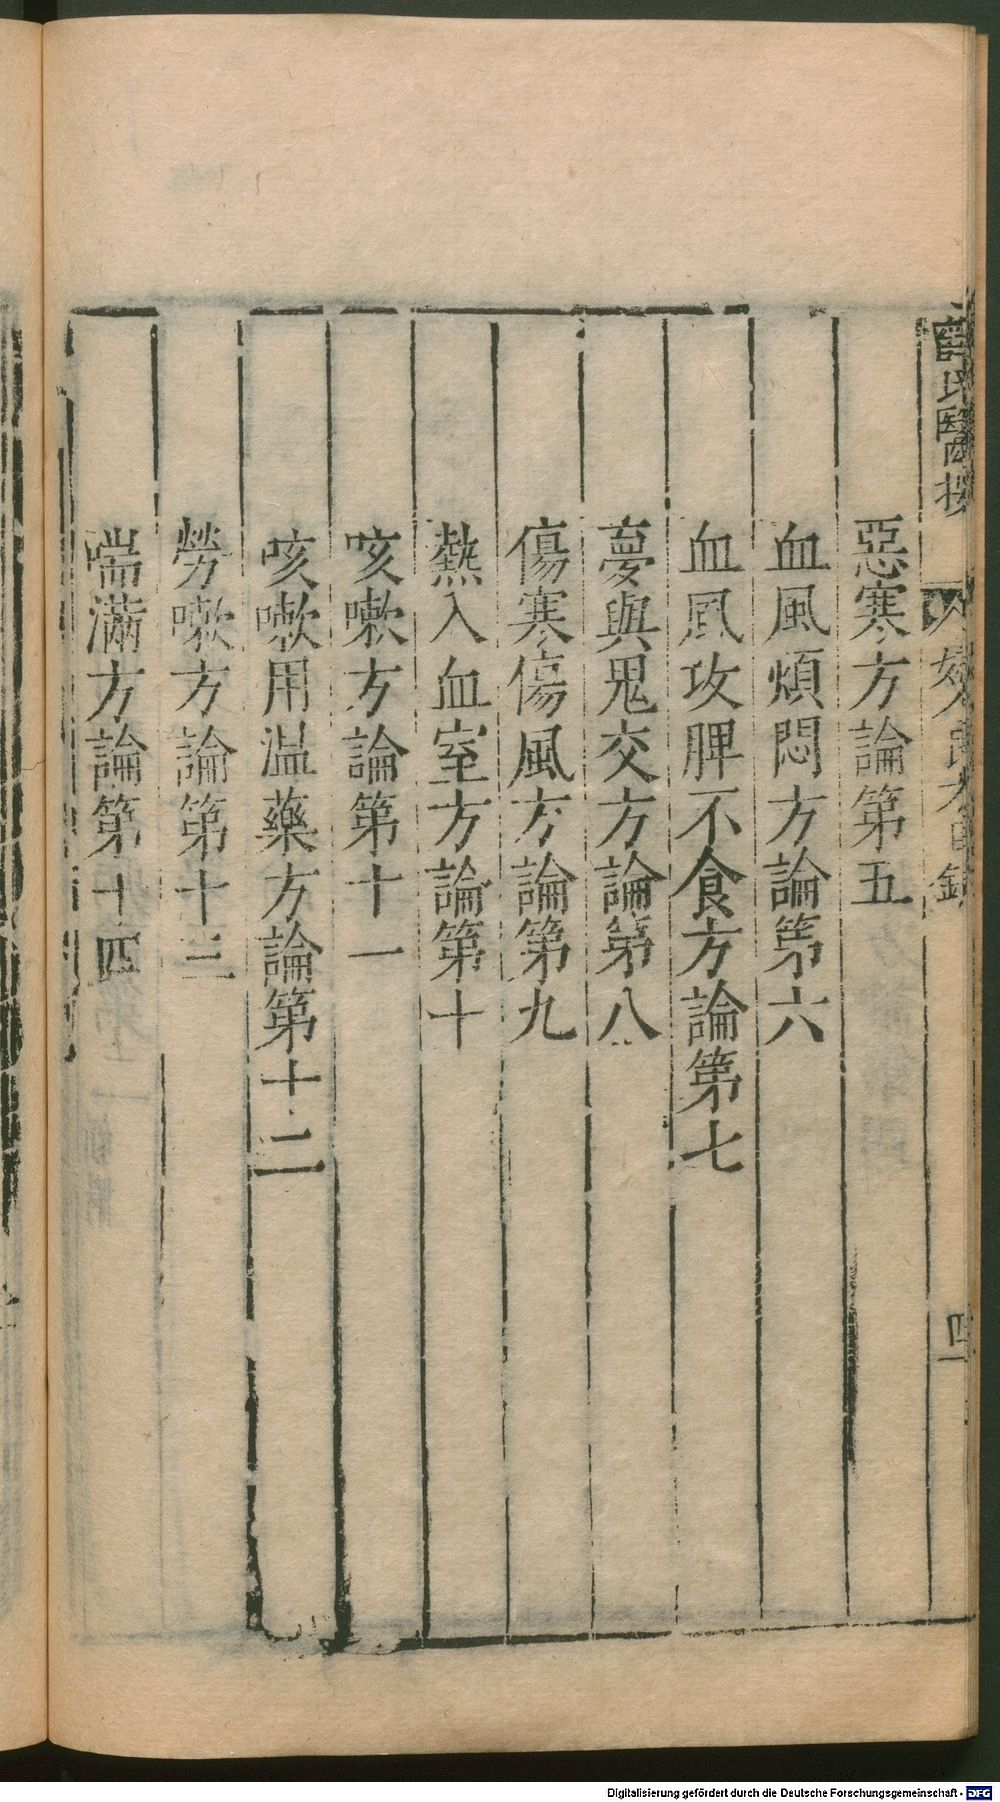 薛氏醫按
婦人良方目錄
四
惡寒方論第五
血風煩悶方論第六
血風攻脾不食方論第七
夢與鬼交方論第八
傷寒傷風方論第九
熱入血室方論第十
咳嗽方論第十一
咳嗽用温藥方論第十二
勞嗽方論第十三
喘滿方論第十四
Digitalisierung gefördert durch die Deutsche Forschungsgemeinschaft - DFG